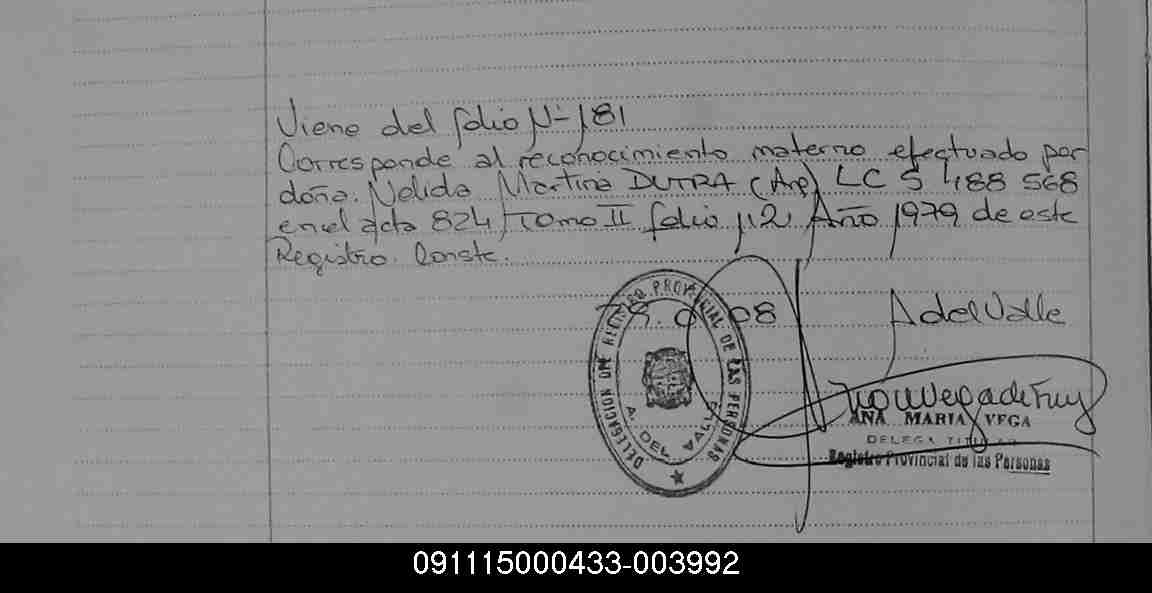 Viene del folio Nº 181
Corresponde al reconocimiento materno efectuado por
doña. Nelida Martina DUTRA (Arg) LC 5 488 568
en el acta 824 Tomo II folio 112 Año 1979 de este
Registro. Conste.
08
A del Valle
DELEGACION DEL REGISTRO PROVINCIAL DE LAS PERSONAS
A. DEL VALLE
ANA MARIA VEGA
DELEGA TITULAR
Registro Provincial de las Personas
091115000433-003992